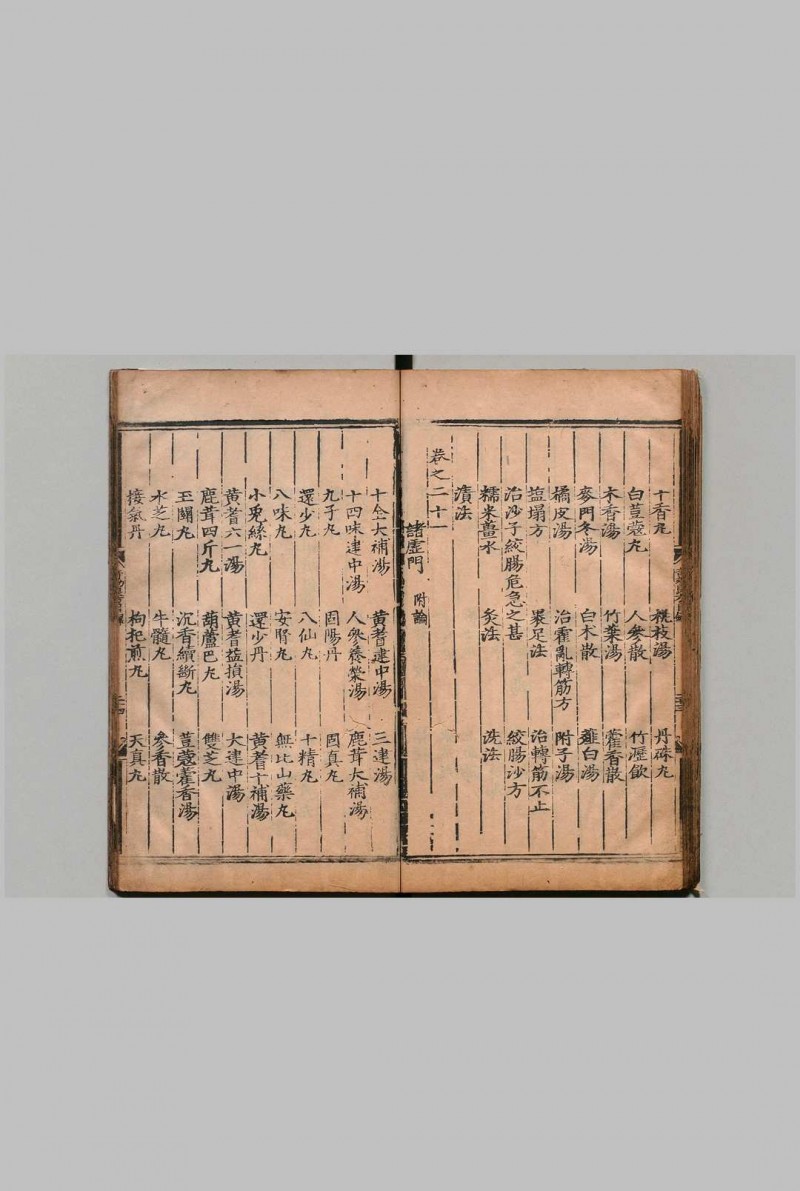 十香丸 桃枝湯 丹砵丸
白荳蔻丸 人參散 竹瀝飲
木香湯 竹葉湯 藿香散
麥門冬湯 白术散 薤白湯
橘皮湯 治霍亂轉筋方 附子湯
塩塌方 暴足法 治轉筋不止
治沙子絞腸危急之甚 絞腸沙方
糯米薑水 灸法 洗法
漬法
卷之二十一
諸虛門 附論
十全大補湯 黃耆建中湯 三建湯
十四味建中湯 人參養榮湯 鹿茸大補湯
九子丸 固陽丹 固真丸
還少丸 八仙丸 十精丸
八味丸 安腎丸 無比山藥丸
小兎絲丸 還少丹 黃耆十補湯
黃耆六一湯 黃耆益損湯 大建中湯
鹿茸四斤丸 葫蘆巴丸 雙芝丸
玉關丸 沉香續斷丸 荳蔻藿香湯
水芝丸 牛髓丸 參香散
接氣丹 枸杞煎丸 天真丸